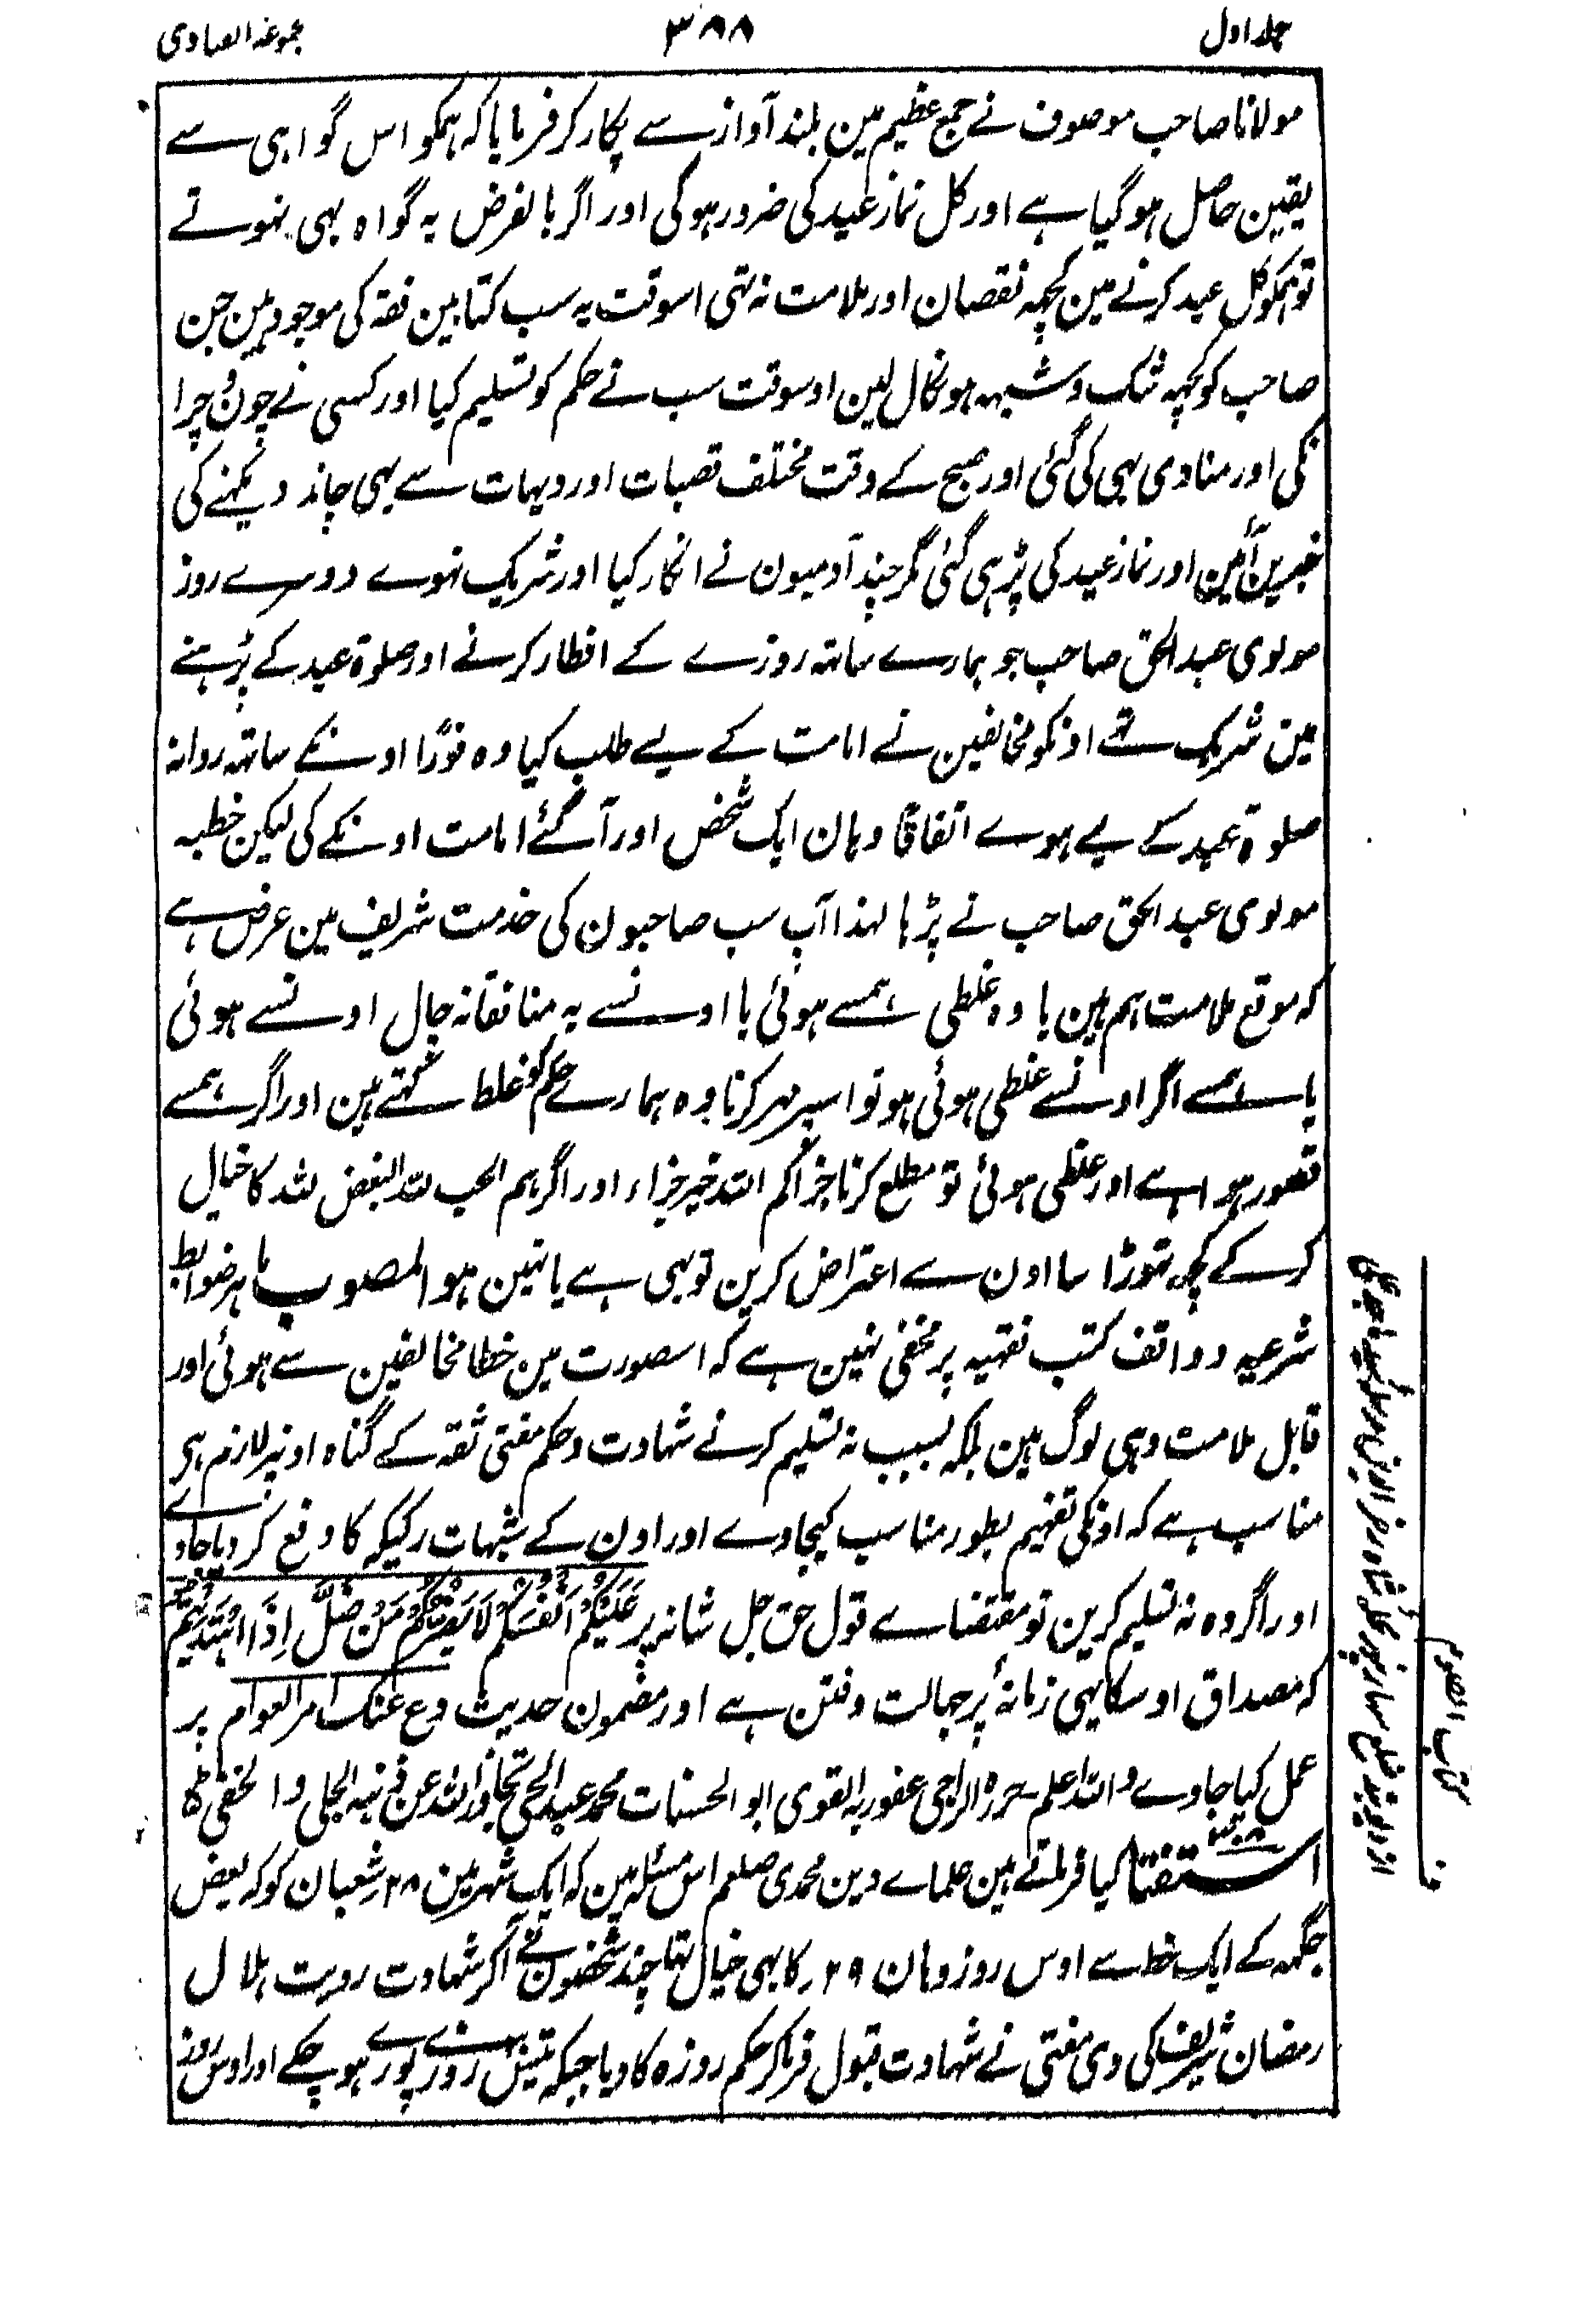 جلد اول
۳۸۸
مجموعۃ الفتاوی
مولانا صاحب موصوف نے مجمع عظیم مین بلند آواز سے پکار کر فرمایا کہ ہمکو اس گواہی سے
یقین حاصل ہو گیا ہے اور کل نماز عید کی ضرور ہوگی اور اگر بالفرض یہ گواہ بہی نہوتے
تو ہمکو کل عید کرنے مین کچہہ نقصان اور ملامت نہ تہی اسوقت یہ سب کتابین فقہ کی موجود ہین جن
صاحب کو کچہہ شک و شبہہ ہو نکال لین اوسوقت سب نے حکم کو تسلیم کیا اور کسی نے چون و چرا
نکی اور منادی بہی کی گئی اور صبح کے وقت مختلف قصبات اور دیہات سے بہی چاند دیکہنے کی
خبرین آئین اور نماز عید کی پڑہی گئی مگر چند آدمیون نے انکار کیا اور شریک نہوے دوسرے روز
مولوی عبد الحق صاحب جو ہمارے ساتہہ روزے کے افطار کرنے اور صلوۃ عید کے پڑہنے
مین شریک تہے اونکو مخالفین نے امامت کے لیے طلب کیا وہ فورًا اونکے ساتہہ روانہ
صلوۃ عید کے لیے ہوے اتفاقًا وہان ایک شخص اور آگئے امامت اونکے کی لیکن خطبہ
مولوی عبد الحق صاحب نے پڑہا لہذا آپ سب صاحبون کی خدمت شریف مین عرض ہے
کہ موقع ملامت ہم ہین یا وہ غلطی ہمسے ہوئی یا اونسے یہ منافقانہ چال اونسے ہوئی
یا ہمسے اگر اونسے غلطی ہوئی ہو تو اسپر مہر کرنا وہ ہمارے حکم کو غلط کہتے ہین اور اگر ہمسے
قصور ہوا ہے اور غلطی ہوئی تو مطلع کرنا جزاکم اللہ خیر جزاء اور اگر ہم الحب للہ البغض للہ کا خیال
کر کے کچہہ تہوڑا سا اون سے اعتراض کرین تو بہی ہے یا نہین ہو المصوب ماہر ضوابط
شرعیہ و واقف کتب فقہیہ پر مخفی نہین ہے کہ اسصورت مین خطا مخالفین سے ہوئی اور
قابل ملامت وہی لوگ ہین بلکہ بسبب نہ تسلیم کرنے شہادت و حکم مفتی ثقہ کے گناہ اونپر لازم ہی
مناسب ہے کہ اونکی تفہیم بطور مناسب کیجاوے اور اون کے شبہات رکیکہ کا دفع کر دیا جاوے
اور اگر وہ نہ تسلیم کرین تو مقتضاے قول حق جل شانہ پر عَلَیْکُمْ اَنْفُسَکُمْ لَا یَضُرُّکُمْ مَنْ ضَلَّ اِذَا اهْتَدَیْتُمْ
کہ مصداق اوسکا یہی زمانۂ پر جہالت و فتن ہے اور مضمون حدیث دع عنک امر العوام پر
عمل کیا جاوے واللہ اعلم حررہ الراجی عفو ربہ القوی ابو الحسنات محمد عبد الحی تجاوز اللہ عن ذنبہ الجلی والخفی
استفتا کیا فرماتے ہین علماے دین محمدی صلعم اس مسئلہ مین کہ ایک شہر مین ۲۸ شعبان کو کہ بعض
جگہہ کے ایک خط سے اوس روز وہان ۲۹ کا بہی خیال تہا چند شخصون نے آکر شہادت رویت ہلال
رمضان شریف کی دی مفتی نے شہادت قبول فرما کر حکم روزہ کا دیا جبکہ تیس روزے پورے ہو چکے اور اوس روز
کتاب الصوم